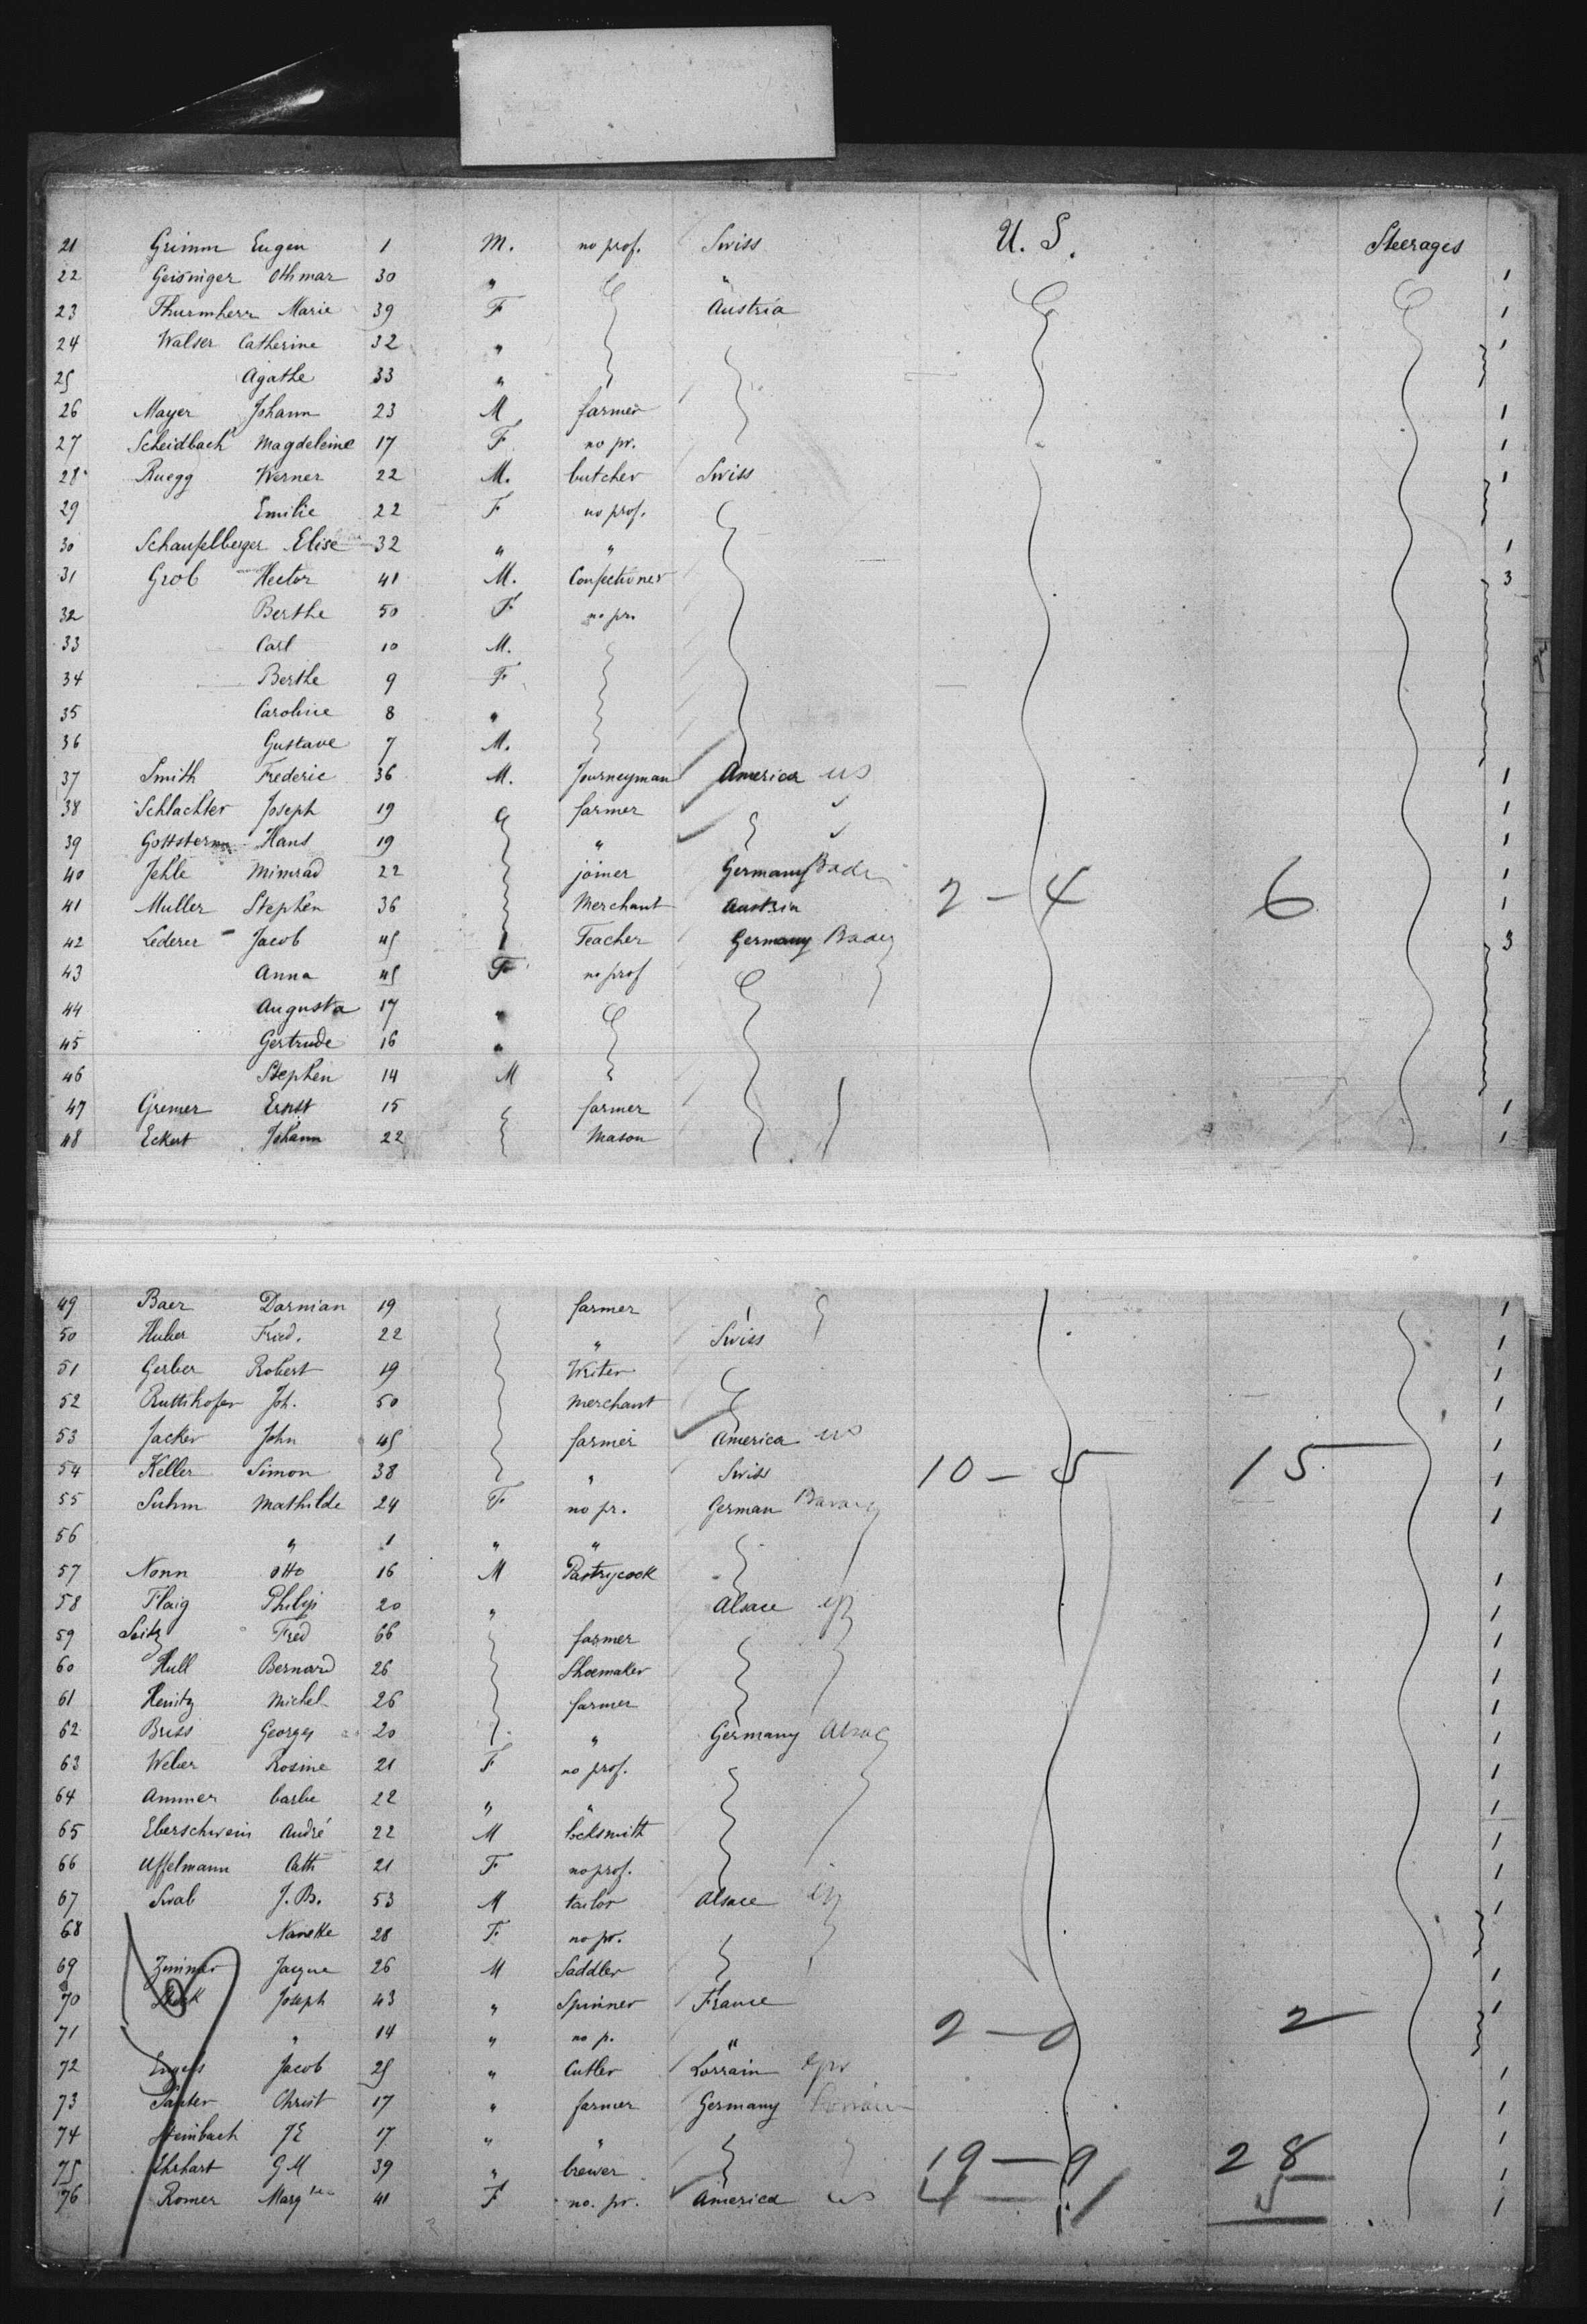 21 Grimm Eugen 1 M. no prof. Swiss U. S. Steerages
22 Geisniger Othmar 30 " " 1
23 Thurmherr Marie 39 F Austria 1
24 Walser Catherine 32 " 1
25 Agathe 33 "
26 Mayer Johann 23 M farmer 1
27 Scheidbach Magdeleine 17 F no pr. 1
28 Ruegg Werner 22 M. butcher Swiss 1
29 Emilie 22 F no prof.
30 Schaufelberger Elise 32 " " 1
31 Grob Hector 41 M. Confectioner 3
32 Berthe 50 F no pr.
33 Carl 10 M.
34 Berthe 9 F
35 Caroline 8 "
36 Gustave 7 M.
37 Smith Frederic 36 M. Journeyman America US 1
38 Schlachter Joseph 19 farmer 1
39 Hans 19 " 1
40 Jehle Minrad 22 joiner Germany Bade 1
41 Muller Stephen 36 Merchant Austria 2 - 4 6 1
42 Lederer Jacob 45 Teacher Germany Baden 3
43 Anna 45 F no prof
44 Augusta 17 "
45 Gertrude 16 "
46 Stephen 14 M
47 Gremer Ernst 15 farmer 1
48 Eckert Johann 22 Mason 1
49 Baer Damian 19 farmer 1
50 Huber Fried. 22 " Swiss 1
51 Gerber Robert 19 Writer 1
52 Ruttihofer Joh. 50 Merchant 1
53 Jacker John 45 farmer America US 1
54 Keller Simon 38 " Swiss 10 - 5 15 1
55 Suhm Mathilde 24 F no pr. German Bavaria 1
56 " 1 " "
57 Nonn Otto 16 M Pastrycook 1
58 Flaig Philip 20 " Alsace 1
59 Seitz Fred 66 farmer 1
60 Hull Bernard 26 Shoemaker 1
61 Henitz Michel 26 farmer 1
62 Briss Georges 20 " Germany Alsac 1
63 Weber Rosine 21 F no prof. 1
64 Ammer barbe 22 " " 1
65 Eberschwein André 22 M locksmith 1
66 Uffelmann Cath 21 F no prof. 1
67 Swab J. B. 53 M tailor Alsace 1
68 Nanette 28 F. no pr.
69 Zimmer Jacque 26 M Saddler 1
70 Joseph 43 " Spinner France 1
71 " 14 " no p. " 2 - 0 2
72 Engels Jacob 25 " Cutler Lorrain 1
73 Christ 17 " farmer Germany Lorrain 1
74 Steinbach JE 17 " " 1
75 Ehrhart G M 39 " brewer 19 - 9 28 1
76 Romer Marg 41 F no. pr. America US 4 - 1 5 1